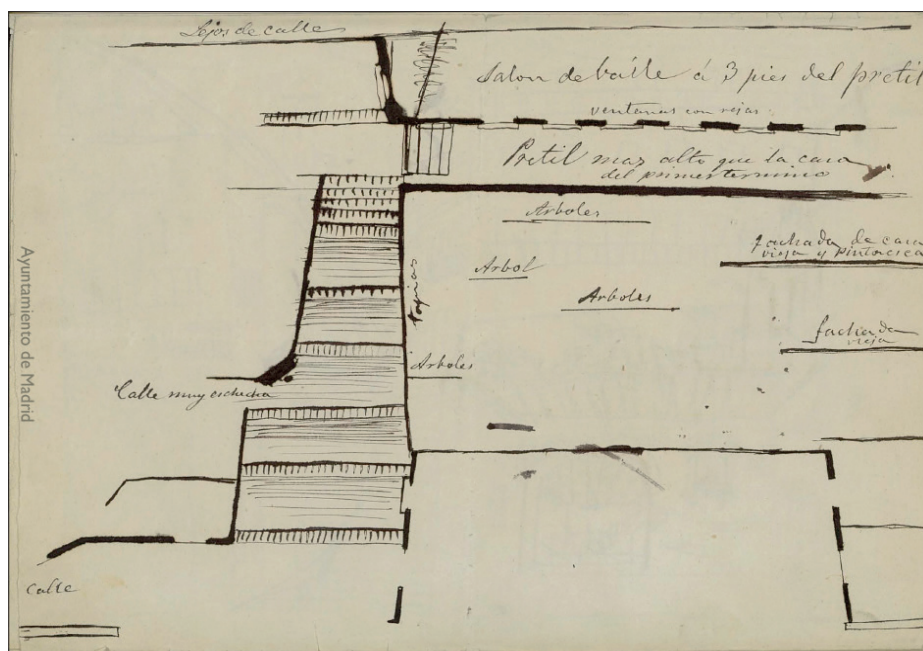 Lejos de calle
Salon de baile á 3 pies del pretil
ventanas con rejas.
Pretil mas alto que la casa
del primer termino
Arboles
fachada de casa
vieja y pintoresca
Arbol
tapias
Arboles
fachada
vieja
Arboles
Calle muy estrecha
Calle
Ayuntamiento de Madrid